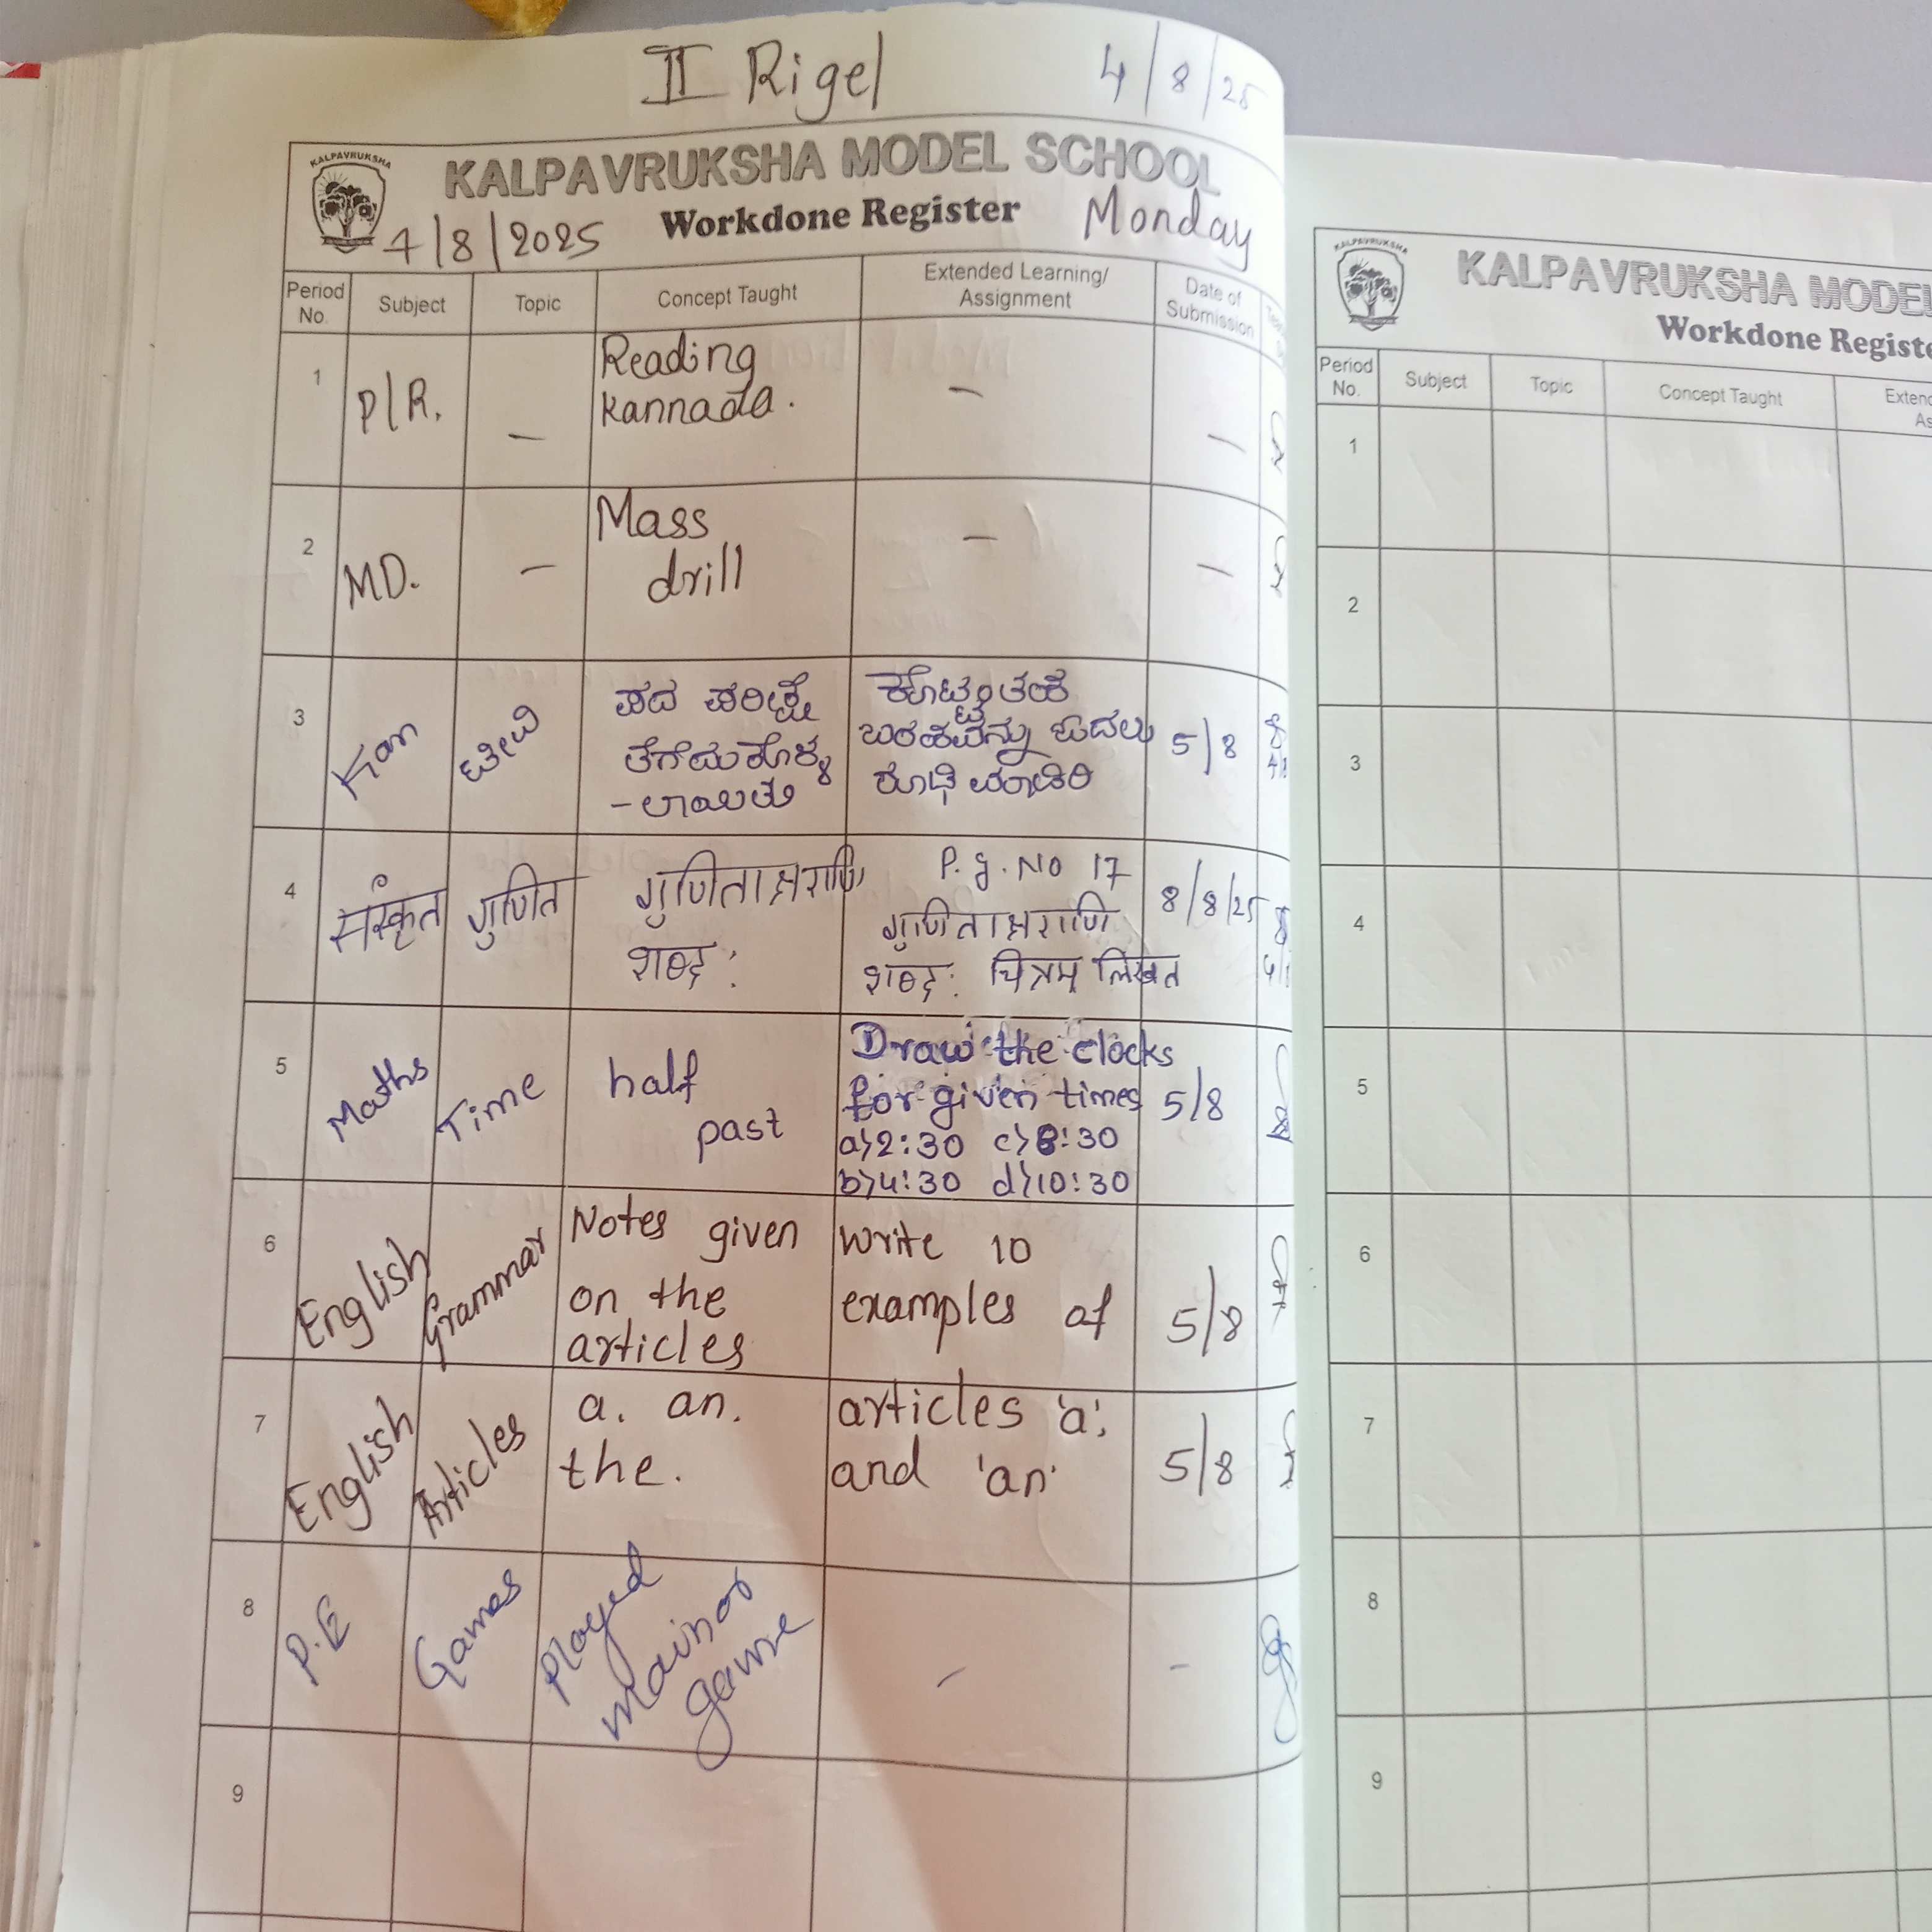 II Rigel 4/8/25
KALPAVRUKSHA
KALPAVRUKSHA MODEL SCHOOL
4/8/2025 Workdone Register Monday
Period No. Subject Topic Concept Taught Extended Learning/ Assignment Date of Submission
1 P/R. – Reading – –
Kannada.
2 MD. – Mass – –
drill
3 Kan ಟೀವಿ ಪದ ಪರೀಕ್ಷೆ ಕೊಟ್ಟಂತಹ 5/8
ತೆಗೆದುಕೊಳ್ಳ ಬರಹವನ್ನು ಓದಲು
-ಲಾಯಿತು ರೂಢಿ ಮಾಡಿರಿ
4 संस्कृत गुणित गुणिताक्षराणि P.g. No 17 8/8/25
शब्द: गुणिताक्षराणि
शब्द: चित्रम् लिखत
5 Maths Time half past Draw the clocks 5/8
for given times
a>2:30 c>8:30
b>4:30 d>10:30
6 English Grammar Notes given Write 10 5/8
on the examples of
articles
7 English Articles a. an. articles 'a', 5/8
the. and 'an'
8 P.E Games Played – –
mainor
game
9
KALPAVRUKSHA
KALPAVRUKSHA MODEL
Workdone Registe
Period No. Subject Topic Concept Taught Extend
As
1
2
3
4
5
6
7
8
9